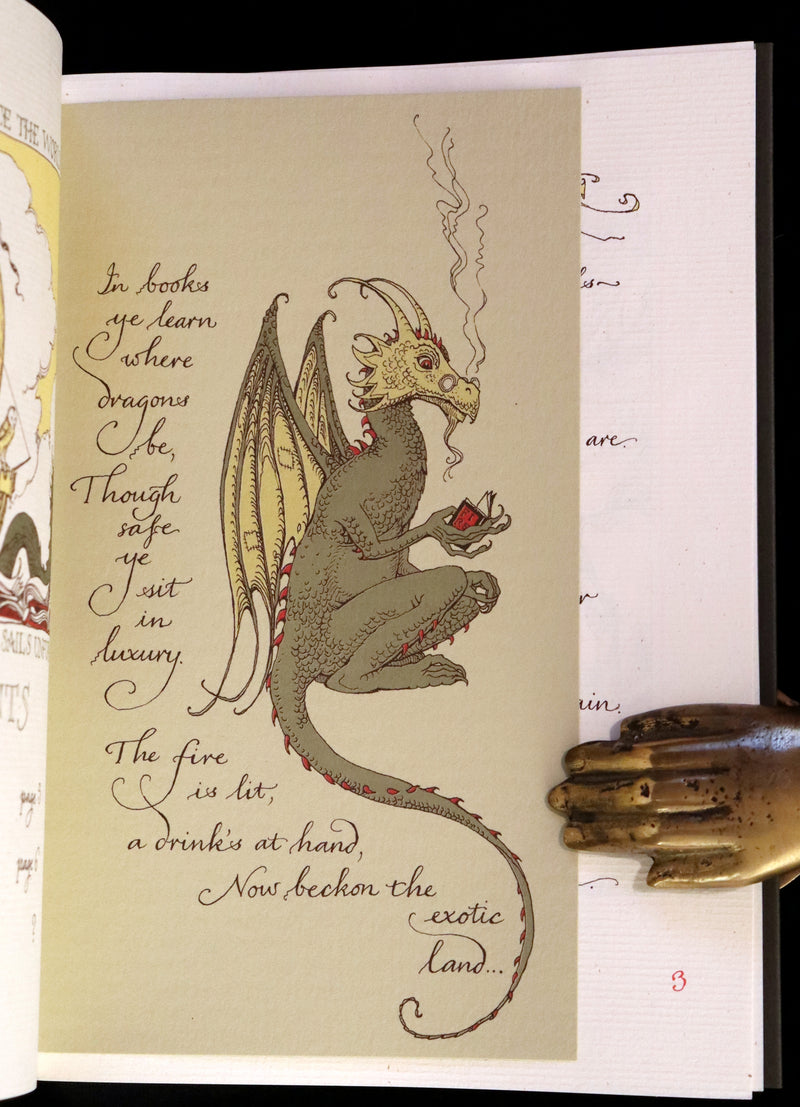 In books
ye learn
where
dragons
be,
Though
safe
ye
sit
in
luxury.
The fire
is lit,
a drink's at hand,
Now beckon the
exotic
land...
THE
SAILS
page
page 6
are.
3